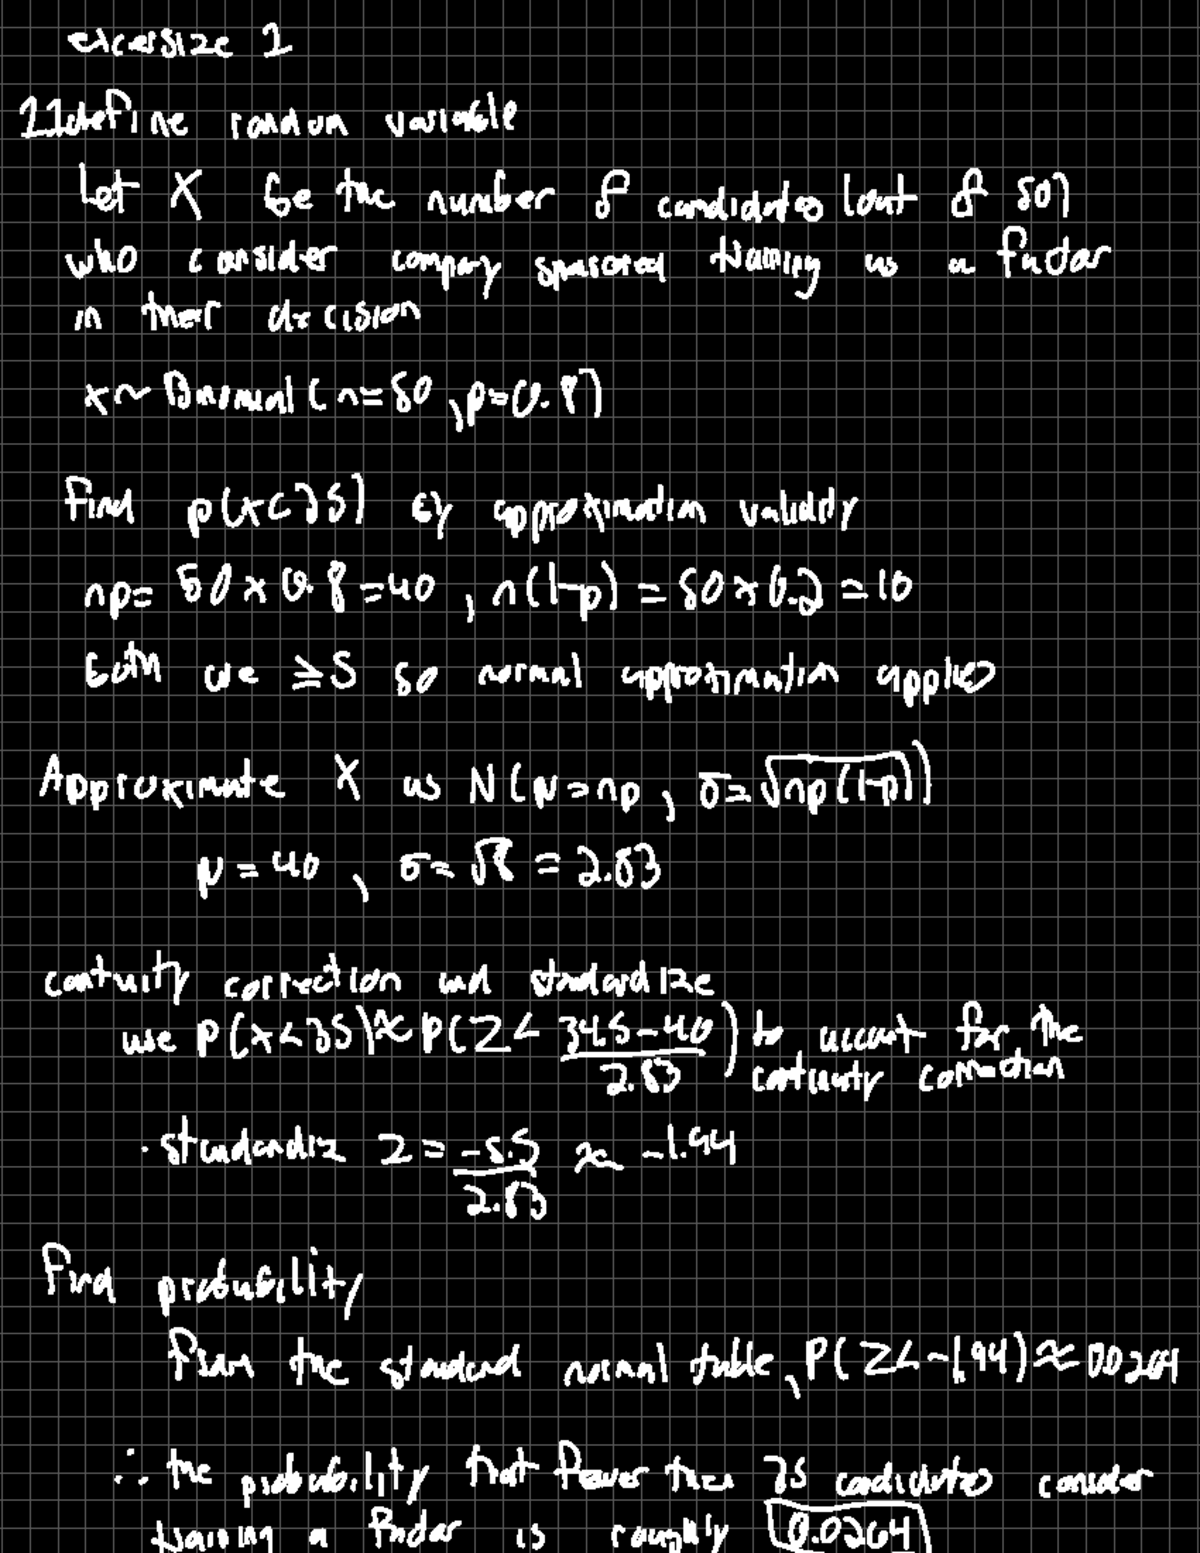 excersize 1
1.1 define random variable
Let X be the number of candidates (out of 50)
who consider company sponsored training as a factor
in their decision
x ~ Binomial (n=50, p=0.8)
Find p(x<35) by approximation validity
np= 50 × 0.8 = 40, n(1-p) = 50 × 0.2 = 10
both are ≥5 so normal approximation applies
Approximate X as N(μ=np, σ=√np(1-p))
μ = 40, σ= √8 = 2.83
contuity correction and standardize
use P(x<35) ≈ P(Z< (34.5-40)/2.83) to account for the
contunity correction
· standardiz Z = -5.5/2.83 ≈ -1.94
Find probability
From the standard normal table, P(Z<-1.94) ≈ 0.0264
∴ the probability that fewer than 35 candidates consider
training a factor is roughly 0.0264